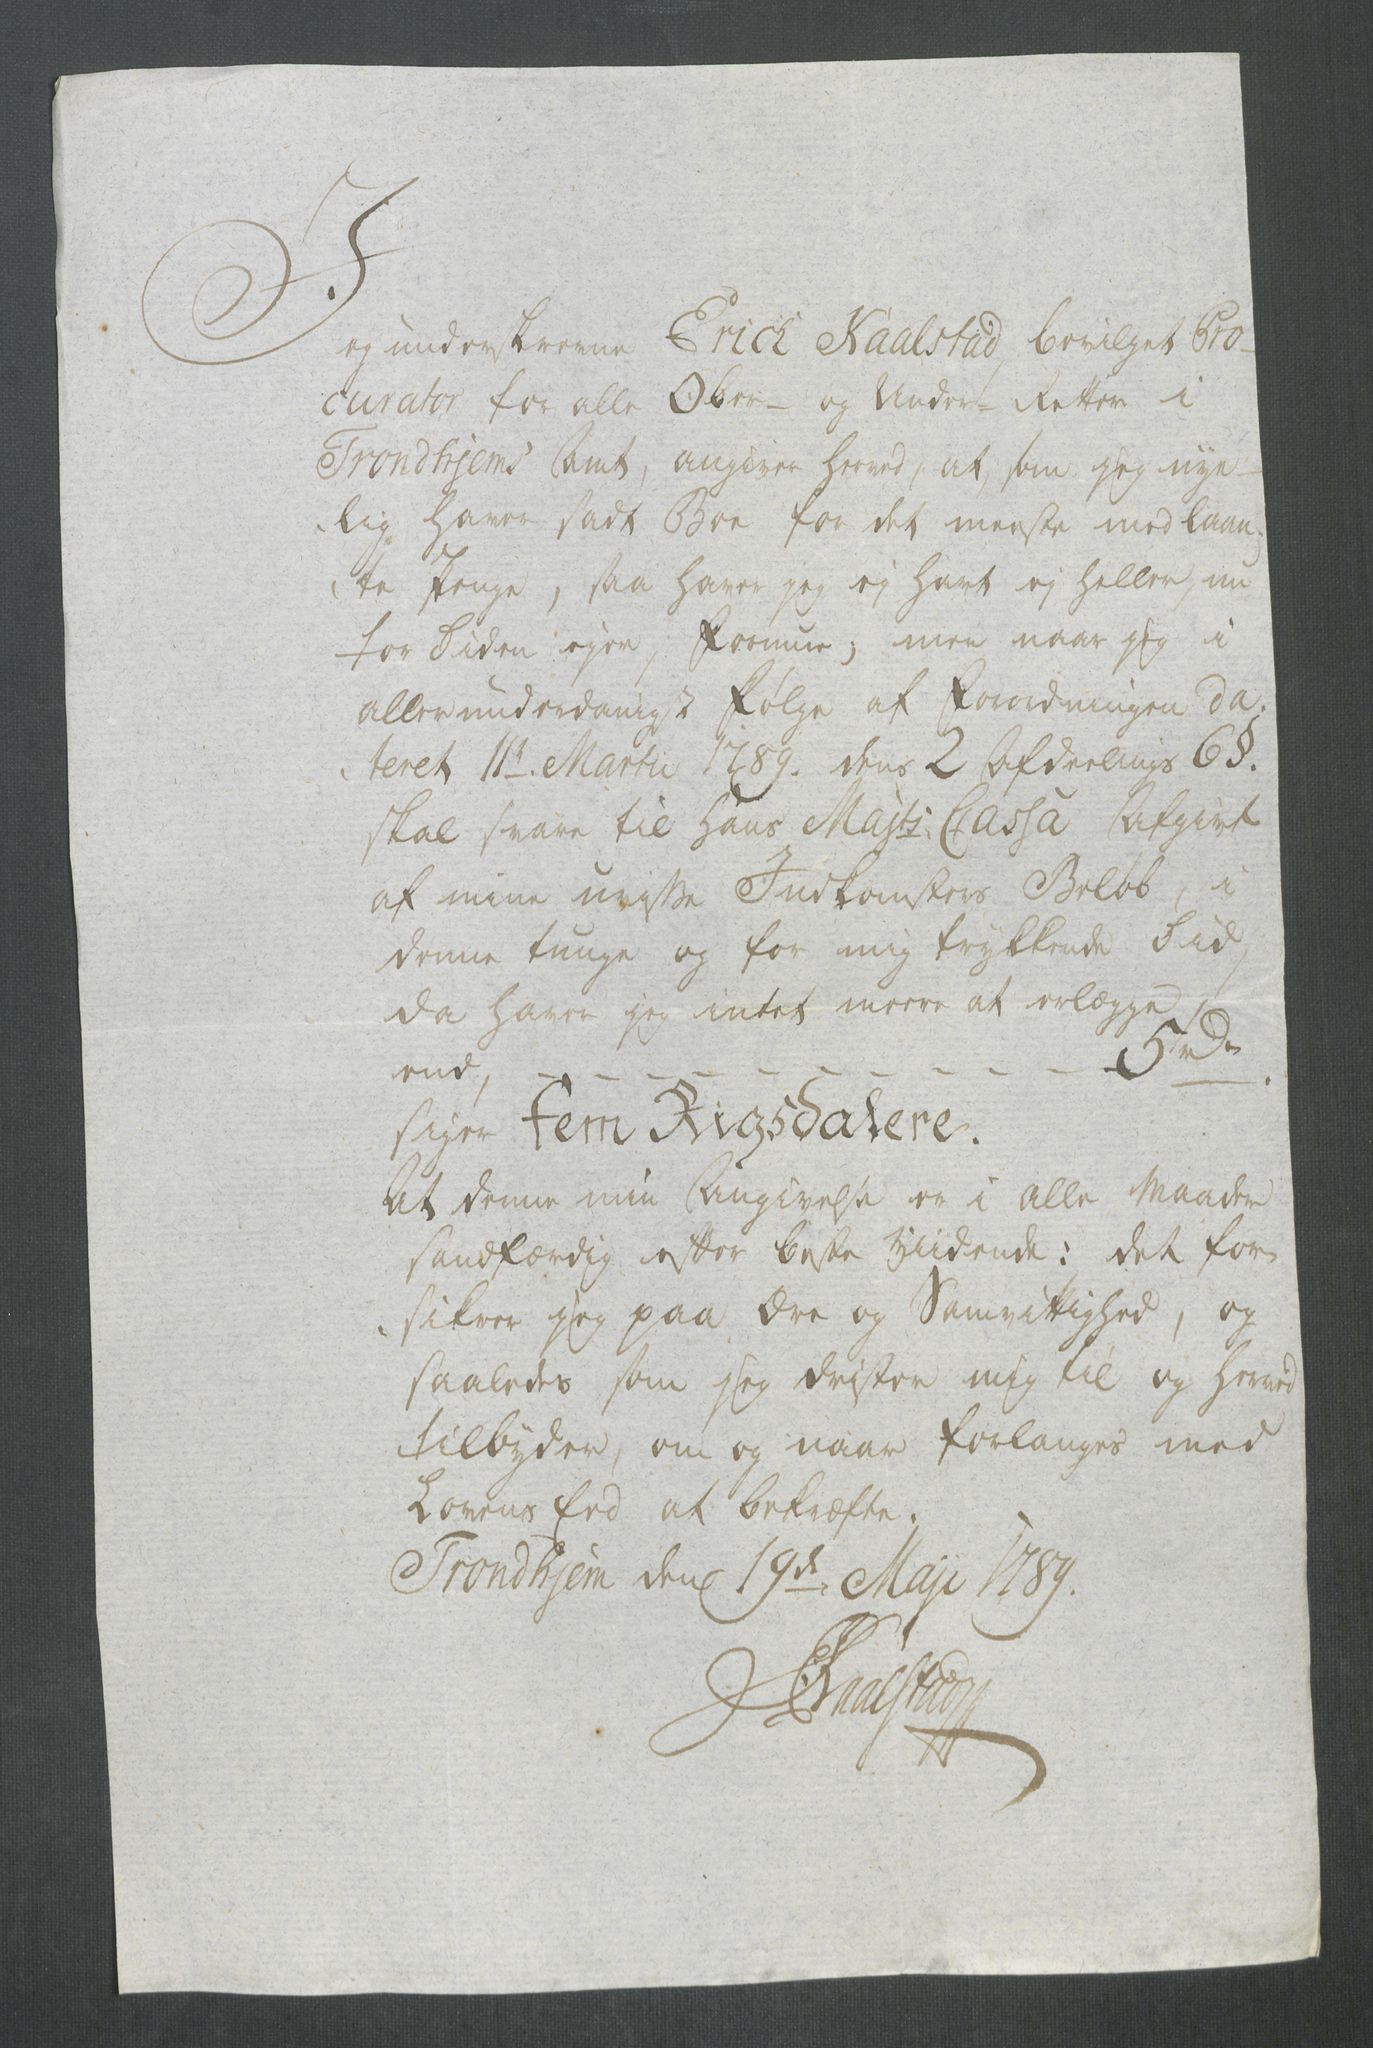 J
eg underskrevne Erich Kaalstad, bevilget Pro-
curator for alle Ober- og Under-Retter i
Trondhjems Amt, angiver herved, at, som jeg nye-
lig haver sadt Boe for det meeste med laan-
te Penge, saa haver jeg ej havt ej heller, nu
for Tiden ejer, Formue; men naar jeg i
allerunderdanigst Følge af Forordningen da-
teret 11t. Martii 1789. dens 2 Afdeelings 6 §.
skal svare til Hans Majts: Cassa Afgivt
af mine uvisse Indkomsters Beløb, i
denne tunge og for mig trykkende Tid,
da haver jeg intet meere at erlægge,
end, - - - - - - - - - - - 5 rd.
siger Fem Rigsdalere.
At denne min Angivelse er i alle Maader
sandfærdig efter beste Viidende: det for-
sikrer jeg paa Ære og Samvittighed, og
saaledes som jeg drister mig til og herved
tilbyder, om og naar forlanges med
Lovens Eed at bekræfte.
Trondhjem den 19de Maji 1789.
EKaalstad